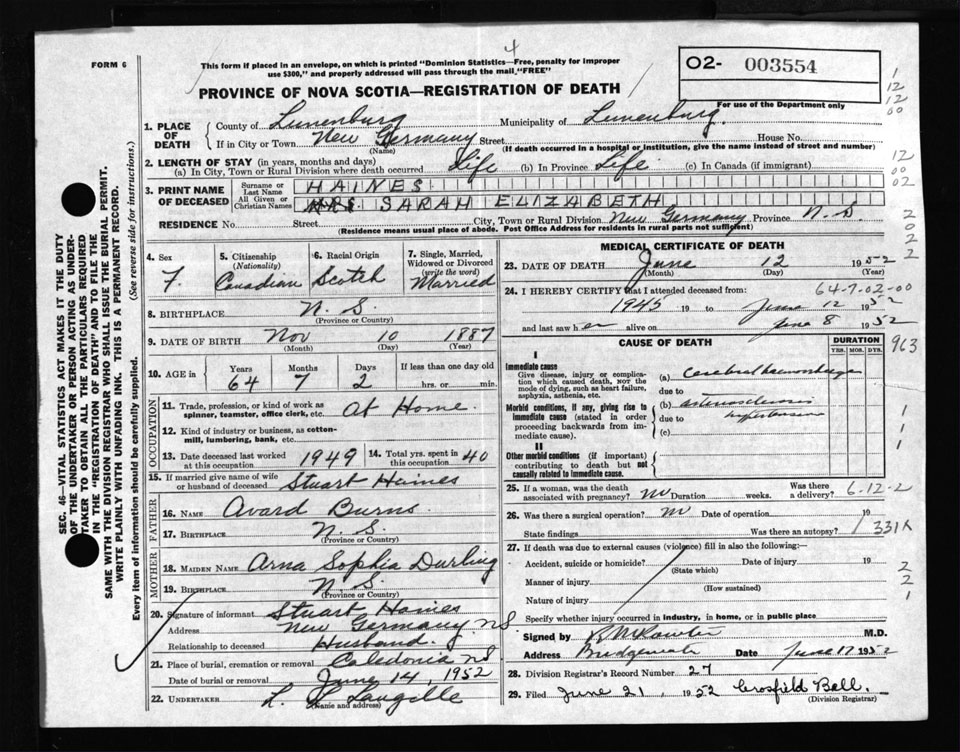 4
FORM 6
This form if placed in an envelope, on which is printed "Dominion Statistics—Free, penalty for improper
use $300," and properly addressed will pass through the mail "FREE"
PROVINCE OF NOVA SCOTIA—REGISTRATION OF DEATH
O2- 003554
For use of the Department only
1. PLACE OF DEATH County of Lunenburg Municipality of Lunenburg.
If in City or Town New Germany Street House No.
(Name) (If death occurred in a hospital or institution, give the name instead of street and number)
2. LENGTH OF STAY (in years, months and days)
(a) In City, Town or Rural Division where death occurred Life (b) In Province Life (c) In Canada (if immigrant)
3. PRINT NAME OF DECEASED Surname or Last Name HAINES
All Given or Christian Names MRS. SARAH ELIZABETH
RESIDENCE No. Street City, Town or Rural Division New Germany Province N.S.
(Residence means usual place of abode. Post Office Address for residents in rural parts not sufficient)
4. Sex F.
5. Citizenship (Nationality) Canadian
6. Racial Origin Scotch
7. Single, Married, Widowed or Divorced (write the word) Married
8. BIRTHPLACE N.S.
(Province or Country)
9. DATE OF BIRTH Nov 10 1887
(Month) (Day) (Year)
10. AGE in Years 64 Months 7 Days 2 If less than one day old
hrs. or min.
OCCUPATION
11. Trade, profession, or kind of work as spinner, teamster, office clerk, etc. At Home.
12. Kind of industry or business, as cotton-mill, lumbering, bank, etc.
13. Date deceased last worked at this occupation 1949 14. Total yrs. spent in this occupation 40
15. If married give name of wife or husband of deceased Stuart Haines
FATHER
16. NAME Avard Burns
17. BIRTHPLACE N.S.
(Province or Country)
MOTHER
18. MAIDEN NAME Arna Sophia Durling
19. BIRTHPLACE N.S.
(Province or Country)
20. Signature of informant Stuart Haines
Address New Germany NS
Relationship to deceased Husband.
21. Place of burial, cremation or removal Caledonia NS
Date of burial, cremation or removal June 14, 1952
22. UNDERTAKER L. Langille
(Name and address)
MEDICAL CERTIFICATE OF DEATH
23. DATE OF DEATH June 12 1952
(Month) (Day) (Year)
64-7-02-00
24. I HEREBY CERTIFY that I attended deceased from:
1945 19 to June 12 1952
and last saw her alive on June 8 1952
CAUSE OF DEATH
DURATION
YRS. MOS. DYS.
963
I
Immediate cause
Give disease, injury or complication which caused death, not the mode of dying, such as heart failure, asphyxia, asthenia, etc.
(a) cerebral haemorrhage
due to
Morbid conditions, if any, giving rise to immediate cause (stated in order proceeding backwards from immediate cause).
(b) arteriosclerosis
due to hypertension
(c)
II
Other morbid conditions (if important) contributing to death but not causally related to immediate cause.
25. If a woman, was the death associated with pregnancy? no Duration weeks. Was there a delivery? 6-12-2
26. Was there a surgical operation? no Date of operation 19
State findings Was there an autopsy? 331X
27. If death was due to external causes (violence) fill in also the following:—
Accident, suicide or homicide? Date of injury 19
(State which)
Manner of injury
(How sustained)
Nature of injury
Specify whether injury occurred in industry, in home, or in public place
Signed by M.D.
Address Bridgewater Date June 17 1952
28. Division Registrar's Record Number 27
29. Filed June 21, 1952 Crosfield Ball.
(Division Registrar)
SEC. 46—VITAL STATISTICS ACT MAKES IT THE DUTY
OF THE UNDERTAKER OR PERSON ACTING AS UNDERTAKER TO OBTAIN ALL THE PARTICULARS REQUIRED
IN THE "REGISTRATION OF DEATH" AND TO FILE THE
SAME WITH THE DIVISION REGISTRAR WHO SHALL ISSUE THE BURIAL PERMIT.
WRITE PLAINLY WITH UNFADING INK. THIS IS A PERMANENT RECORD.
Every item of information should be carefully supplied. (See reverse side for instructions.)
1
12
12
00
12
00
02
2
0
2
2
1
1
1
2
2
1